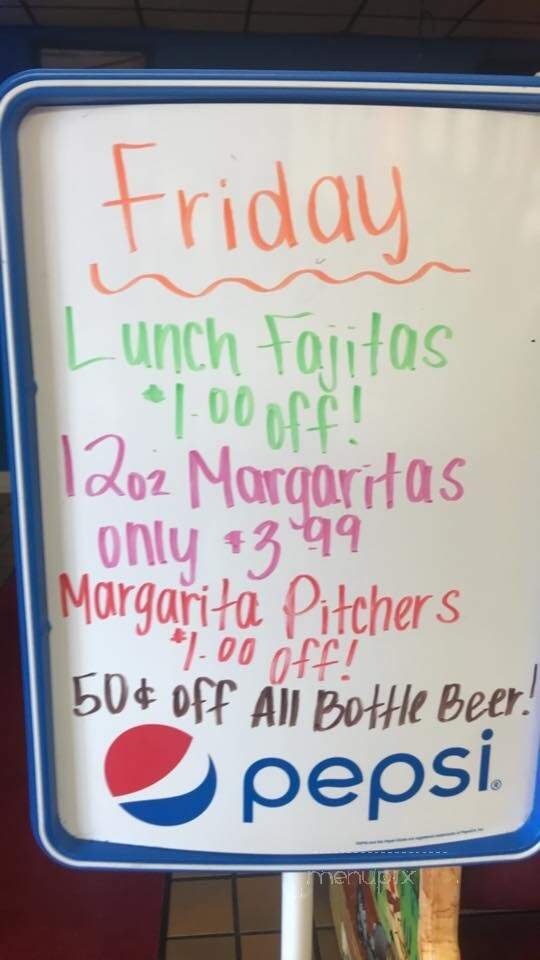 Friday
Lunch Fajitas
$1.00 off!
12oz Margaritas
only $3.99
Margarita Pitchers
$1.00 off!
50¢ off All Bottle Beer!
pepsi
menupix